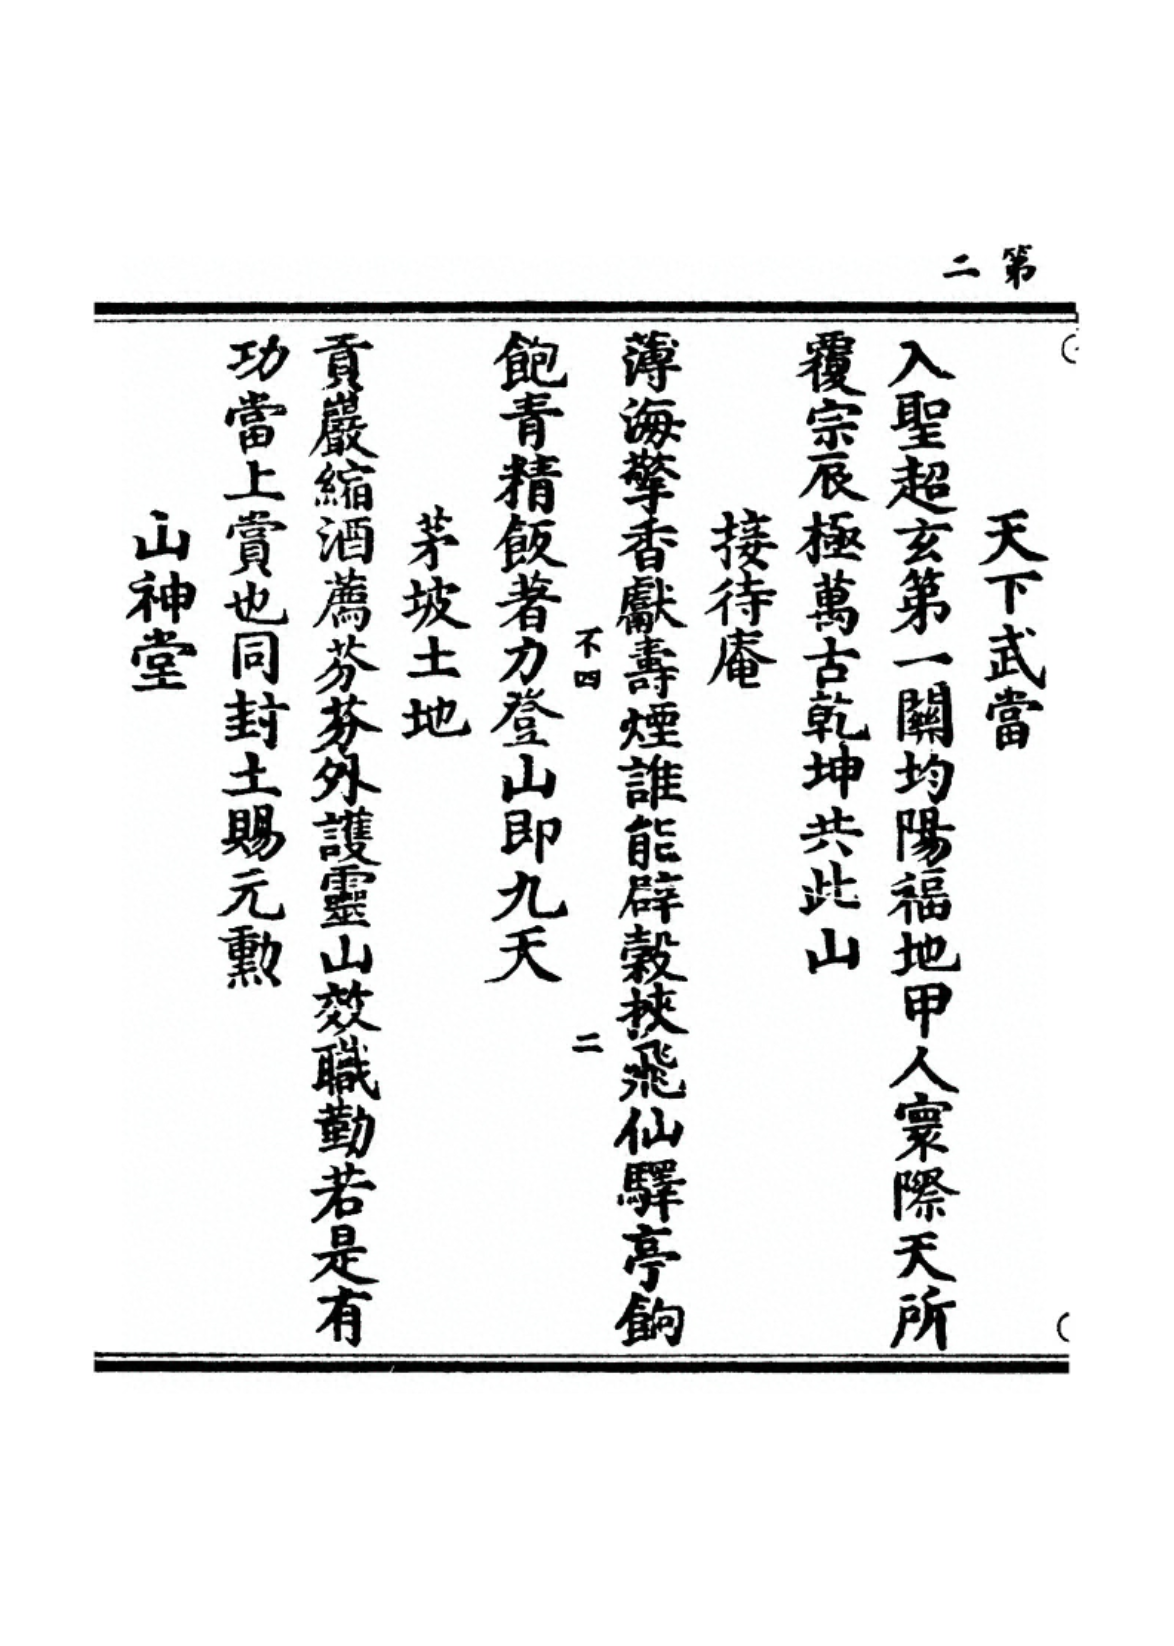 第二
天下武當
入聖超玄第一關均陽福地甲人寰際天所
覆宗辰極萬古乾坤共此山
接待庵
薄海擎香獻壽煙誰能辟穀挾飛仙驛亭餉
不四 二
飽青精飯著力登山即九天
茅坡土地
貢嚴縮酒薦芬芬外護靈山效職勤若是有
功當上賞也同封土賜元勲
山神堂